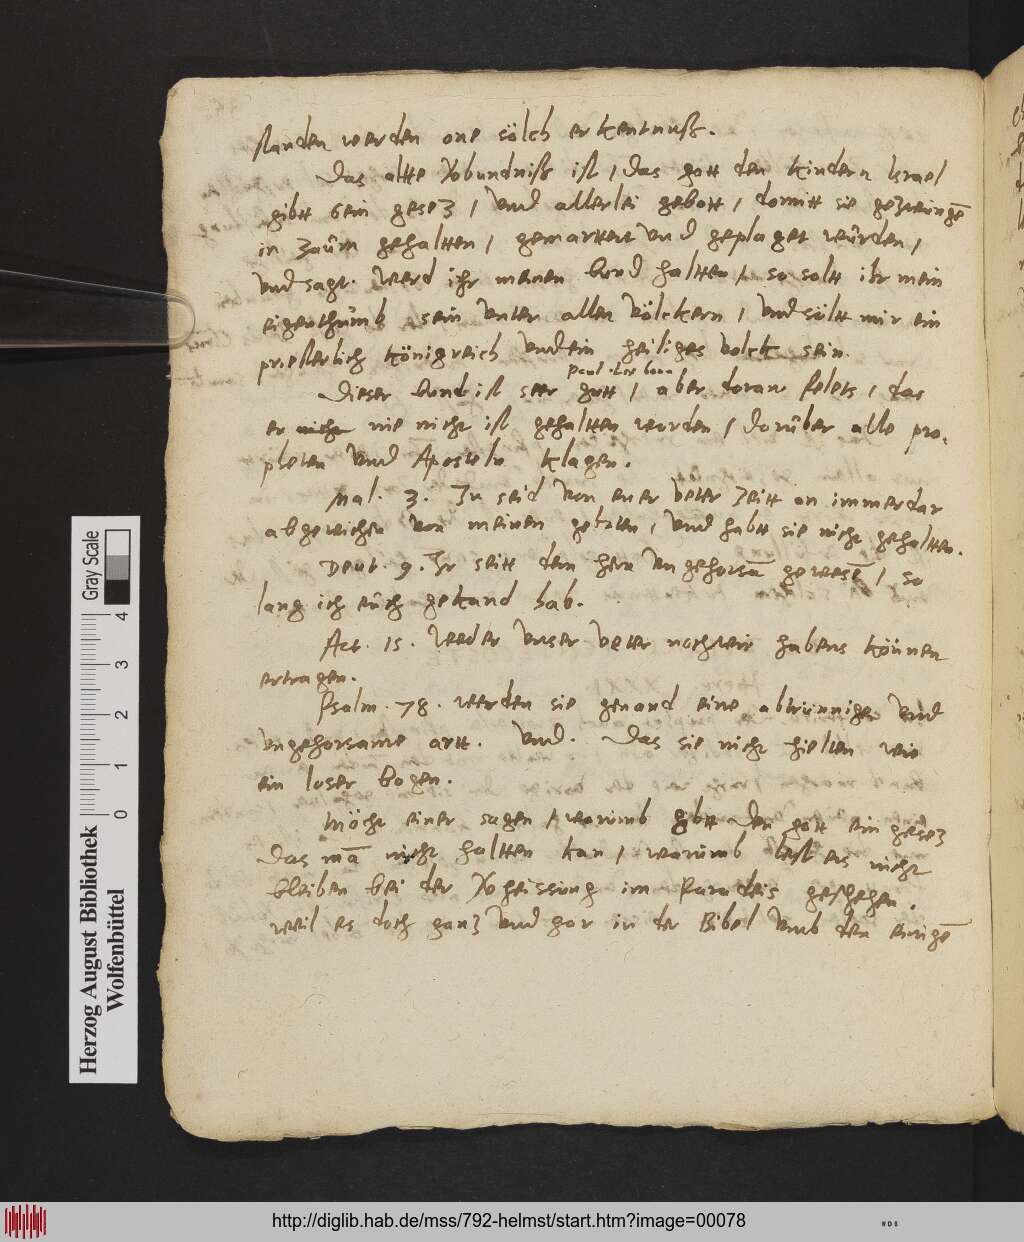 standen werden one sölch erkentnuß.
Das altte Vobundniß ist / das gott den kindern Israel
gibtt sein gesez / und allerlei gebott / domitt sie gezwungē
in zaum gehaltten / gemarttert und geplaget würden /
und sagt. Werd ihr meinen bund haltten / so soltt ihr mein
eigenthumb sein unter allen völckern / und sültt mir ein
priesterlich königreich und ein heiliges volck sein.
Paul. Ler
Dieser bund ist seer gutt / aber doran felets / das
er nie nicht ist gehaltten worden / dorüber alle pro-
pheten und Aposteln klagen.
Mal. 3. Ir seid von euer veter zeitt an immerdar
abgewichen von meinen geboten / und habtt sie nicht gehaltten.
Deut. 9. Ir seitt dem hern ungehorsā gewesē / so
lang ich euch gekand hab.
Act. 15. Weder unser veter noch wir habens können
ertragen.
Psalm. 78. werden sie genand eine abtrünnige und
ungehorsame artt. Und. Das sie nicht hielten wie
ein loser bogen.
Möcht einer sagen / worumb gibtt den gott ein gesez
das mā nicht haltten kan / worumb lest ers nicht
bleiben bei der Vheissung im Paradeis geschehen.
weil es doch ganz und gar in der Bibel umb den einigē
Herzog August Bibliothek
Wolfenbüttel
Gray Scale
0 1 2 3 4
http://diglib.hab.de/mss/792-helmst/start.htm?image=00078